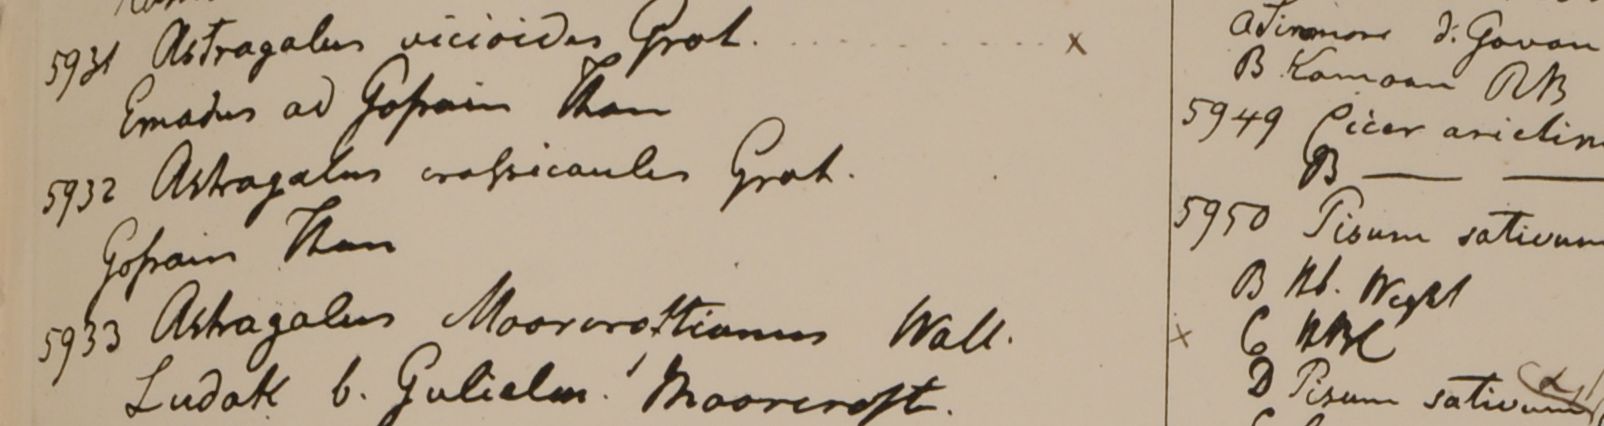 5931 Astragalus vicioides Grah. x
Emodus ad Gosain Than
5932 Astragalus crassicaulis Grah.
Gosain Than
5933 Astragalus Moorcroftianus Wall.
Ludak b. Gulielm. Moorcroft.
a Sirmore d. Govan
B Kamaon RB
5949 Cicer arietin
B — —
5950 Pisum sativum
B Hb. Wight
x C HBC
D Pisum sativum